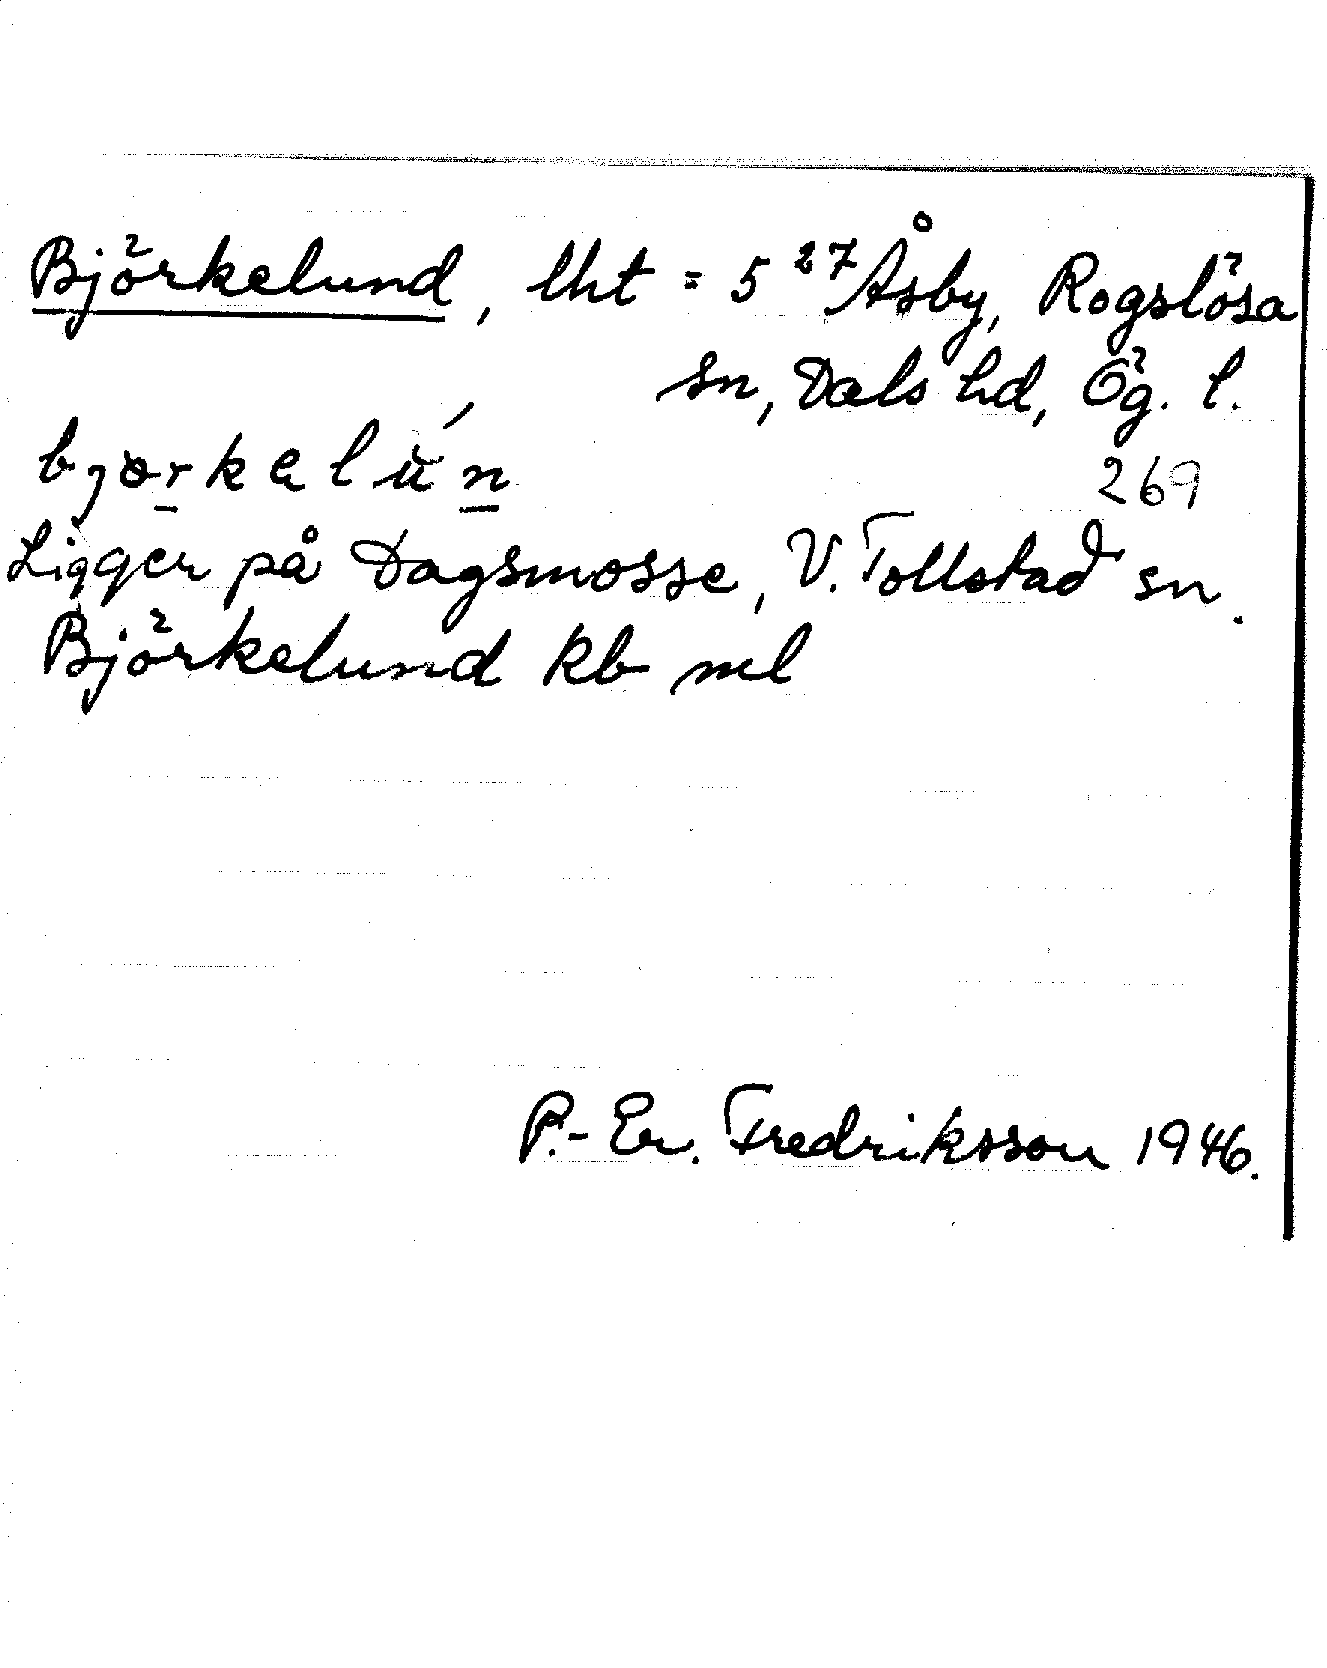 Björkelund, lht = 5²⁷ Åsby, Rogslösa
sn, Dals hd, Ög. l.
bjørkelún
269
Ligger på Dagsmosse, V. Tollstad sn.
Björkelund kb ml
P.-Er. Fredriksson 1946.